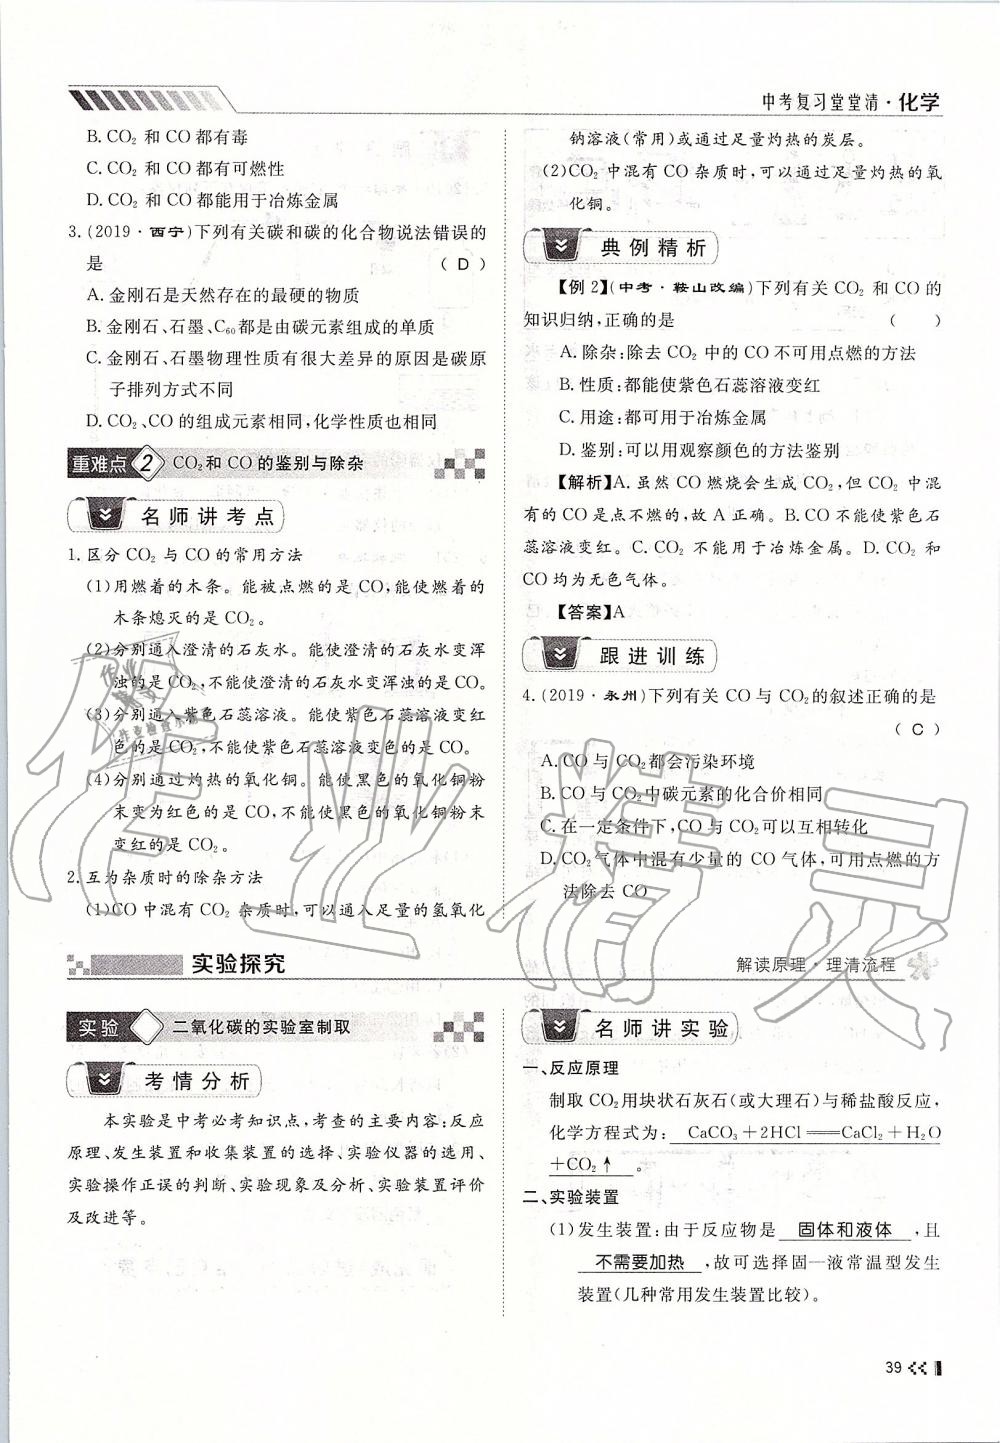 中考复习堂堂清·化学
B. CO₂ 和 CO 都有毒
C. CO₂ 和 CO 都有可燃性
D. CO₂ 和 CO 都能用于冶炼金属
3. (2019·西宁)下列有关碳和碳的化合物说法错误的
是 ( D )
A. 金刚石是天然存在的最硬的物质
B. 金刚石、石墨、C₆₀都是由碳元素组成的单质
C. 金刚石、石墨物理性质有很大差异的原因是碳原
子排列方式不同
D. CO₂、CO 的组成元素相同,化学性质也相同
重难点 2 CO₂和 CO 的鉴别与除杂
名师讲考点
1. 区分 CO₂ 与 CO 的常用方法
(1)用燃着的木条。能被点燃的是 CO,能使燃着的
木条熄灭的是 CO₂。
(2)分别通入澄清的石灰水。能使澄清的石灰水变浑
浊的是 CO₂,不能使澄清的石灰水变浑浊的是 CO。
(3)分别通入紫色石蕊溶液。能使紫色石蕊溶液变红
色的是 CO₂,不能使紫色石蕊溶液变色的是 CO。
(4)分别通过灼热的氧化铜。能使黑色的氧化铜粉
末变为红色的是 CO,不能使黑色的氧化铜粉末
变红的是 CO₂。
2. 互为杂质时的除杂方法
(1)CO 中混有 CO₂ 杂质时,可以通入足量的氢氧化
钠溶液(常用)或通过足量灼热的炭层。
(2)CO₂ 中混有 CO 杂质时,可以通过足量灼热的氧
化铜。
典例精析
【例 2】(中考·鞍山改编)下列有关 CO₂ 和 CO 的
知识归纳,正确的是 ( )
A. 除杂:除去 CO₂ 中的 CO 不可用点燃的方法
B. 性质:都能使紫色石蕊溶液变红
C. 用途:都可用于冶炼金属
D. 鉴别:可以用观察颜色的方法鉴别
【解析】A. 虽然 CO 燃烧会生成 CO₂,但 CO₂ 中混
有的 CO 是点不燃的,故 A 正确。B. CO 不能使紫色石
蕊溶液变红。C. CO₂ 不能用于冶炼金属。D. CO₂ 和
CO 均为无色气体。
【答案】A
跟进训练
4. (2019·永州)下列有关 CO 与 CO₂的叙述正确的是
( C )
A. CO 与 CO₂都会污染环境
B. CO 与 CO₂中碳元素的化合价相同
C. 在一定条件下,CO 与 CO₂可以互相转化
D. CO₂气体中混有少量的 CO 气体,可用点燃的方
法除去 CO
实验探究
解读原理·理清流程
实验 二氧化碳的实验室制取
考情分析
本实验是中考必考知识点,考查的主要内容:反应
原理、发生装置和收集装置的选择、实验仪器的选用、
实验操作正误的判断、实验现象及分析、实验装置评价
及改进等。
名师讲实验
一、反应原理
制取 CO₂用块状石灰石(或大理石)与稀盐酸反应,
化学方程式为: CaCO₃+2HCl══CaCl₂+H₂O
+CO₂↑ 。
二、实验装置
(1)发生装置:由于反应物是 固体和液体 ,且
不需要加热 ,故可选择固—液常温型发生
装置(几种常用发生装置比较)。
39
作业精灵